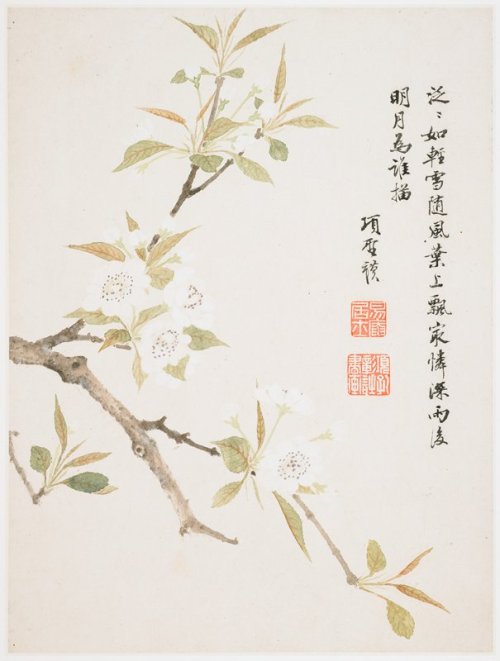 泛〻如輕雪随風葉上飄㝡憐深雨後
明月為誰描
項聖謨